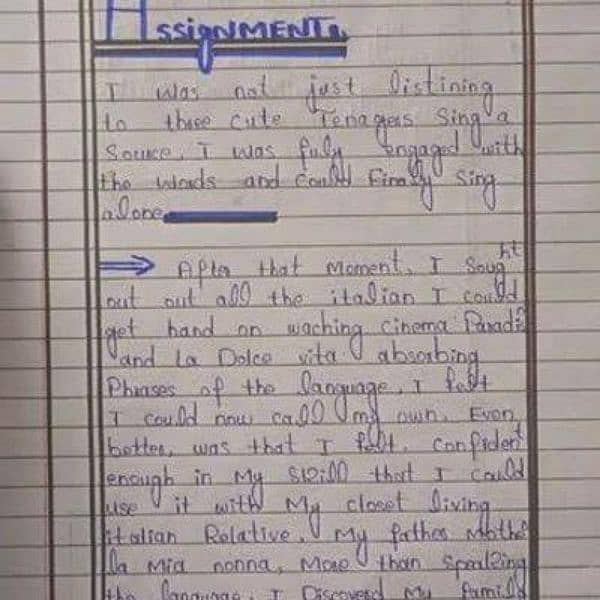 ASSigNMENT
I was not just listining
to three cute Tenagers Sing a
Source. I was fuly engaged with
the words and could Finally Sing
alone
After that Moment, I Sought
out out all the italian I could
get hand on waching Cinema Paradi
and La Dolce vita absorbing
Phrases of the language, I felt
I could now call my own. Even
better, was that I felt. Confident
enough in My Skill that I could
use it with My closet living
italian Relative. My father Mothe
la Mia nonna, More than Speaking
the language, I Discovered My Family